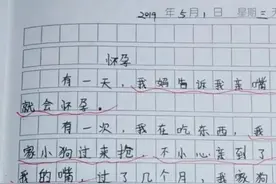 2019年5月1日 星期三 天
怀孕
有一天，我妈告诉我亲嘴
就会怀孕。
有一次，我在吃东西，我
家小狗过来抢，不小心亲到了
我的嘴，过了几个月，我家狗